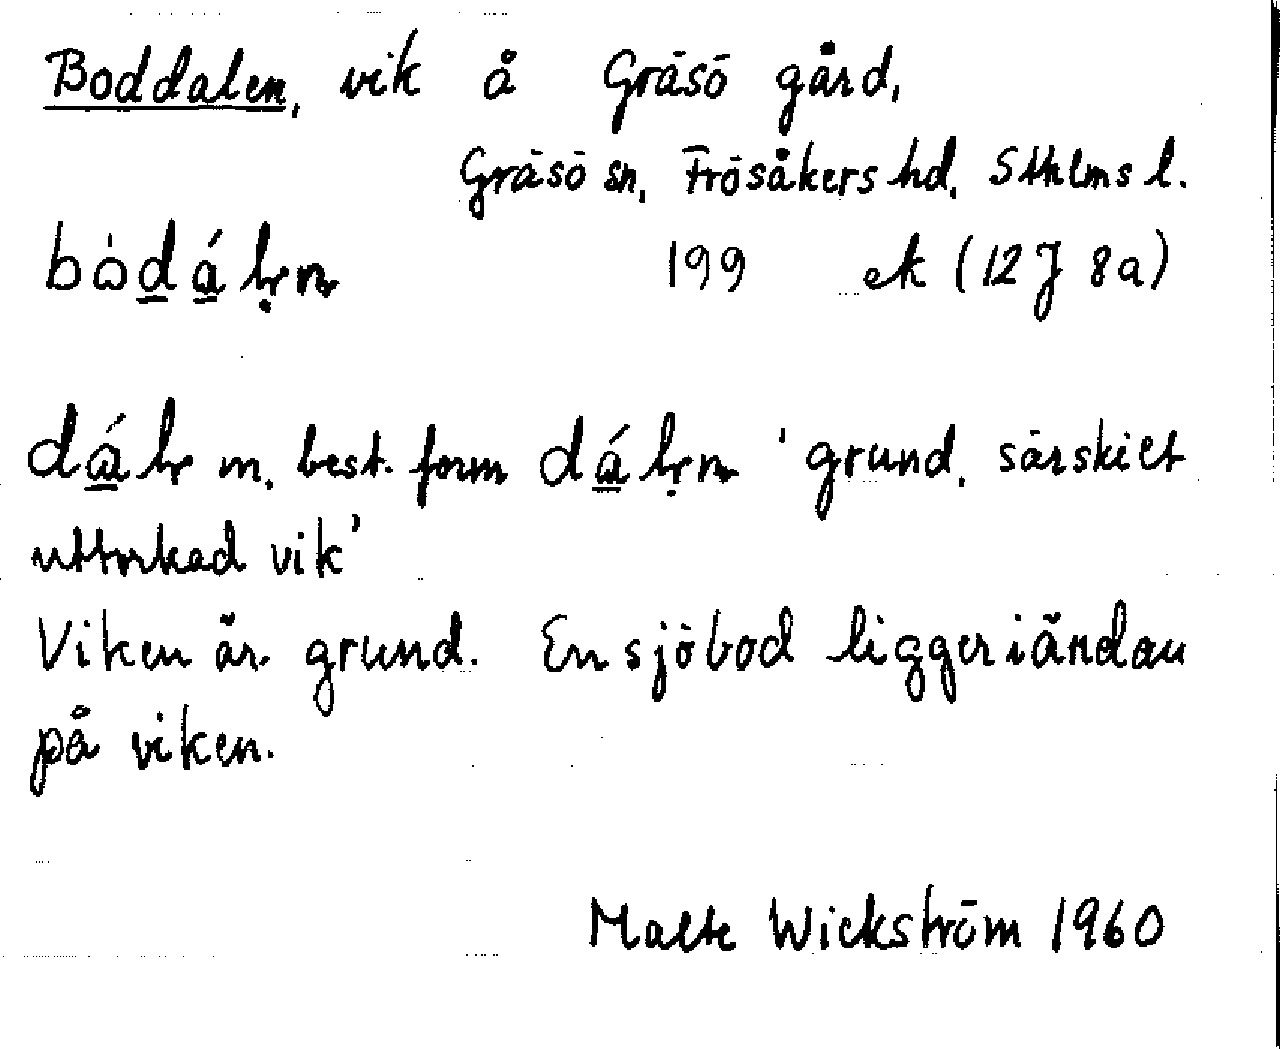 Boddalen, vik å Gräsö gård,
Gräsö sn, Frösåkers hd, Sthlms l.
199 ek (12 J 8a)
m, best. form 'grund, särskilt
uttorkad vik'
Viken är grund. En sjöbod ligger i ändan
på viken.
Malte Wickström 1960